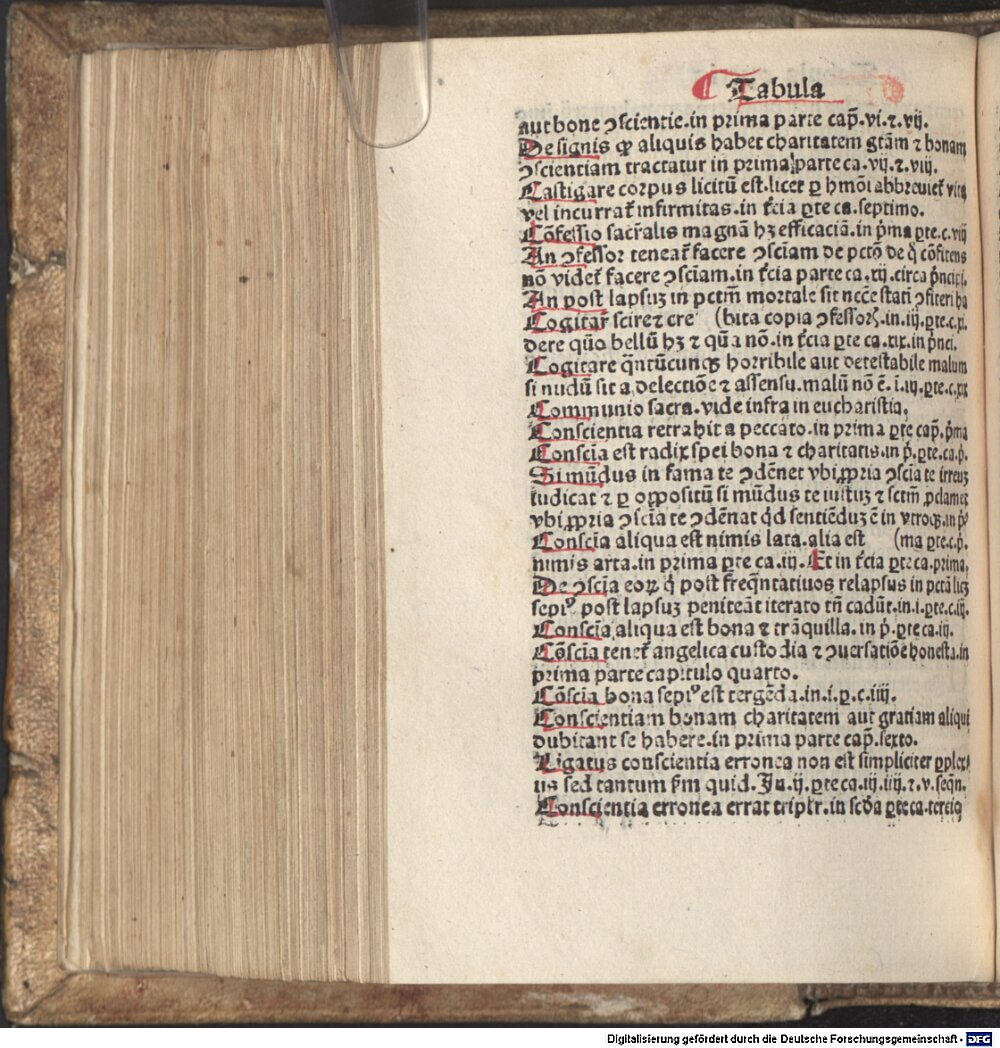 Tabula
aut bone ↄscientie.in prima parte cap̄.vi.⁊.vij.
De signis qͥ aliquis habet charitatem gr̄am ⁊ bonam
ↄscientiam tractatur in prima parte ca.vij.⁊.viij.
Castigare corpus licitū est.licet ꝑ hmōi abbreuiet̄ vita
vel incurrat̄ infirmitas.in t̄cia ꝑte ca.septimo.
Cōfessio sacr̄alis magnā hꝫ efficaciā.in p̄ma ꝑte.c.vij
An ↄfessor teneat̄ facere ↄsciam de pctō de q̄ cōfitens
nō videt̄ facere ↄsciam.in t̄cia parte ca.xij.circa p̄ncipi.
An post lapsuꝫ in pctm̄ mortale sit necc̄e stati ↄfiteri ha
Cogitar̄ scire⁊ cre (bita copia ↄfessorꝝ.in.iij.ꝑte.c.xi.
dere quō bellū hꝫ ⁊ qūa nō.in t̄cia ꝑte ca.xix.in p̄nci.
Cogitare q̄ntūcunqꝫ horribile aut detestabile malum
si nudū sit a delectiōe ⁊ assensu.malū nō ē.i.iij.ꝑte.c.xx
Communio sacra.vide infra in eucharistia.
Conscientia retrahit a peccato.in prima ꝑte cap̄.p̄ma
Conscīa est radix spei bona ⁊ charitatis.in p̄.ꝑte.ca.p̄.
Si mūdus in fama te ↄdēnet vbi ꝓpria ↄscīa te irreuꝫ
iudicat ⁊ ꝑ oꝑpositū si mūdus te iustuꝫ ⁊ sctm̄ ꝓclamet
vbi ꝓpria ↄscīa te ↄdēnat qd̄ sentiēduꝫ ē in vtroqꝫ.in p̄
Conscīa aliqua est nimis lata.alia est (ma ꝑte.c.p̄.
nimis arta.in prima ꝑte ca.iij.Et in t̄cia ꝑte ca.prima.
De ↄscīa eoꝝ q̄ post freq̄ntatiuos relapsus in pctā licꝫ
sepiꝰ post lapsuꝫ peniteāt iterato tn̄ cadūt.in.i.ꝑte.c.iij.
Conscīa aliqua est bona ⁊ trāquilla.in p̄.ꝑte ca.iij.
Cōscīa tenet̄ angelica custodia ⁊ ↄuersatiōe honesta.in
prima parte capitulo quarto.
Cōscīa bona sepiꝰ est tergēda.in.i.ꝑ.c.iiij.
Conscientiam bonam charitatem aut gratiam aliqui
dubitant se habere.in prima parte cap̄.sexto.
Ligatus conscientia erronea non est simpliciter ꝑplex/
us sed tantum s̄m quid.In.ij.ꝑte ca.iij.iiij.⁊.v.seqn̄.
Conscientia erronea errat triplr̄.in scd̄a ꝑte ca.terciꝰ
Digitalisierung gefördert durch die Deutsche Forschungsgemeinschaft - DFG